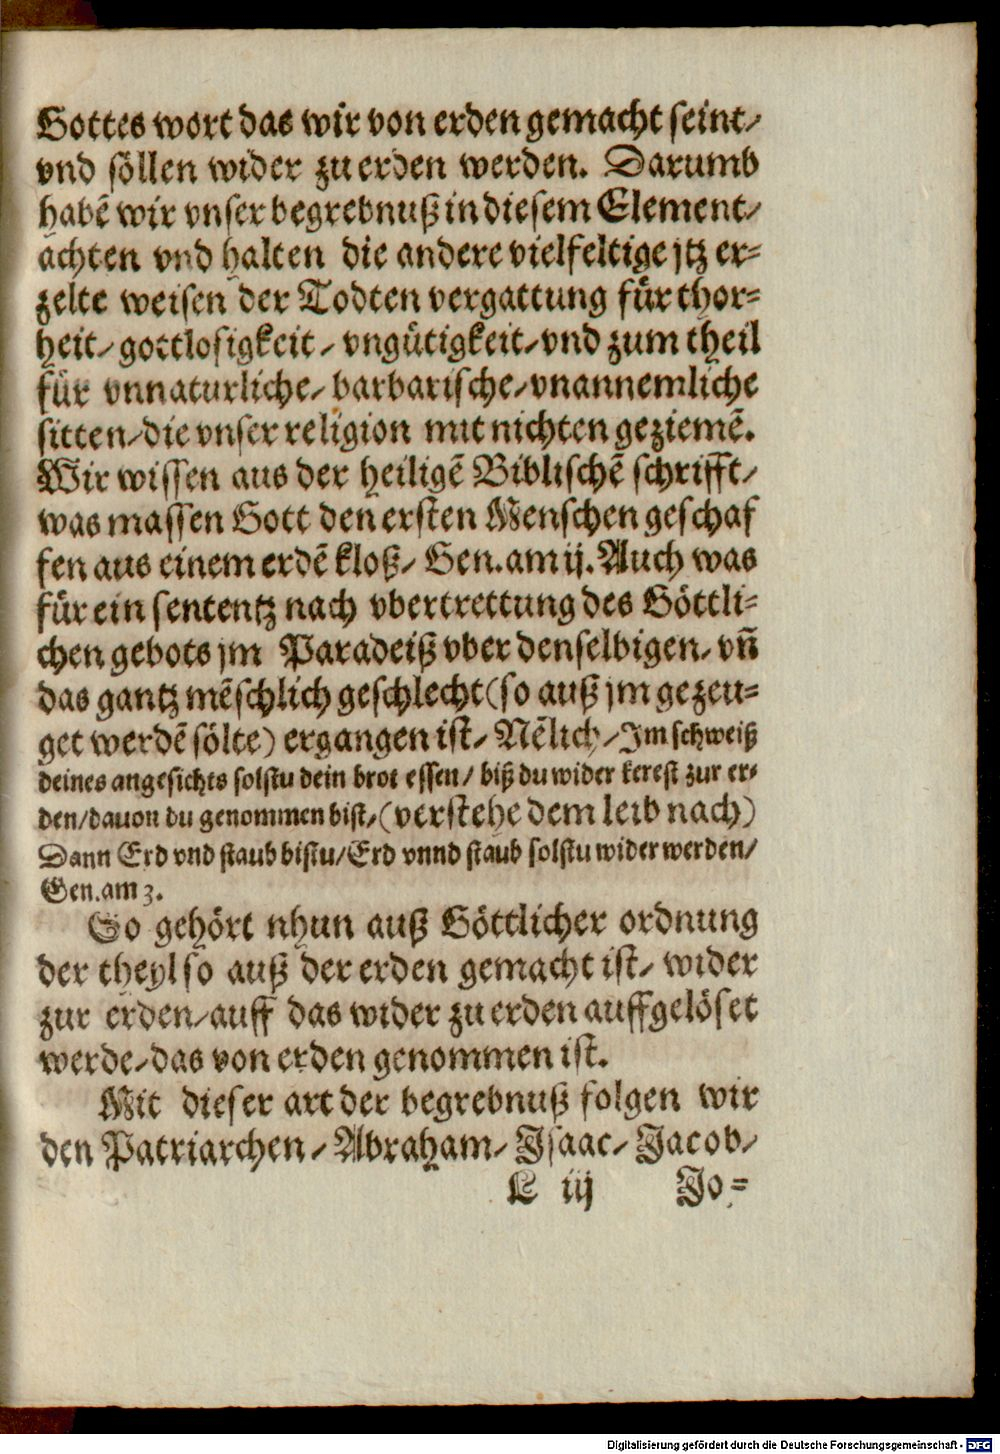 Gottes wort das wir von erden gemacht seint/
vnd söllen wider zu erden werden. Darumb
habẽ wir vnser begrebnuß in diesem Element/
achten vnd halten die andere vielfeltige jtz er=
zelte weisen der Todten vergattung für thor=
heit/ gottlosigkeit/ vngütigkeit/ vnd zum theil
für vnnaturliche/ barbarische/ vnannemliche
sitten/ die vnser religion mit nichten geziemẽ.
Wir wissen aus der heiligẽ Biblischẽ schrifft/
was massen Gott den ersten Menschen geschaf
fen aus einem erdẽ kloß/ Gen. am ij. Auch was
für ein sententz nach vbertrettung des Göttli=
chen gebots jm Paradeiß vber denselbigen/ vn̄
das gantz mẽschlich geschlecht (so auß jm gezeu=
get werdẽ sölte) ergangen ist/ Nẽlich/ Im schweiß
deines angesichts solstu dein brot essen/ biß du wider kerest zur er=
den/ dauon du genommen bist/ (verstehe dem leib nach)
Dann Erd vnd staub bistu/ Erd vnnd staub solstu wider werden/
Gen. am 3.
So gehört nhun auß Göttlicher ordnung
der theyl so auß der erden gemacht ist/ wider
zur erden/ auff das wider zu erden auffgelöset
werde/ das von erden genommen ist.
Mit dieser art der begrebnuß folgen wir
den Patriarchen/ Abraham/ Isaac/ Jacob/
L iij Jo=
Digitalisierung gefördert durch die Deutsche Forschungsgemeinschaft - DFG